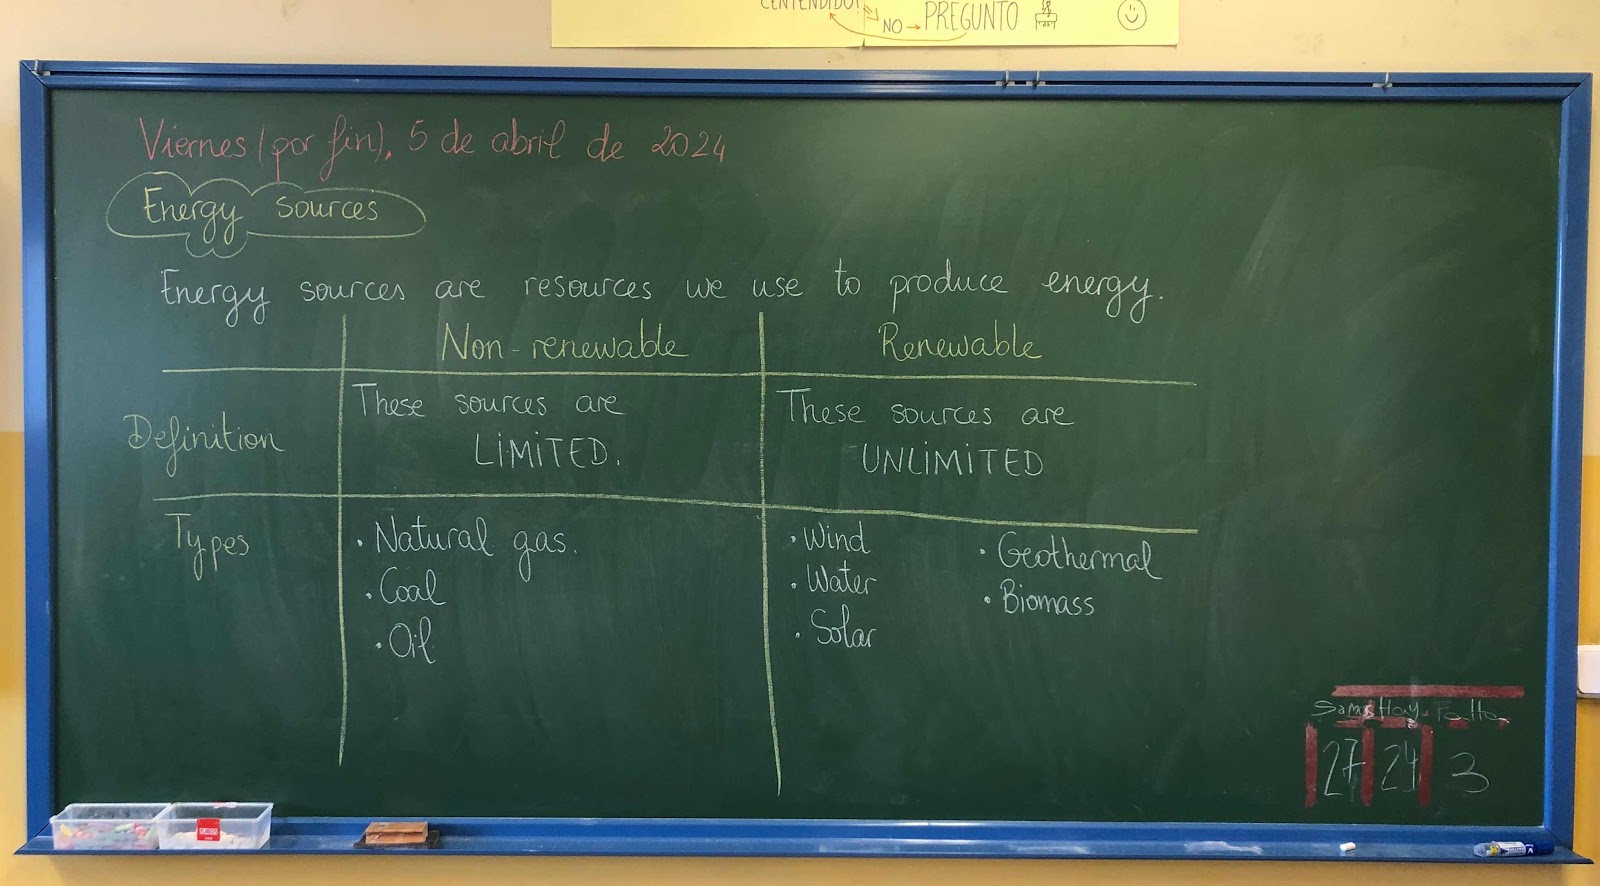 ¿ENTENDIDO?
NO → PREGUNTO
Viernes (por fin), 5 de abril de 2024
Energy sources
Energy sources are resources we use to produce energy.
Non-renewable Renewable
Definition
These sources are
LIMITED.
These sources are
UNLIMITED
Types
• Natural gas.
• Coal
• Oil
• Wind
• Water
• Solar
• Geothermal
• Biomass
Somos Hay Falta
27 24 3